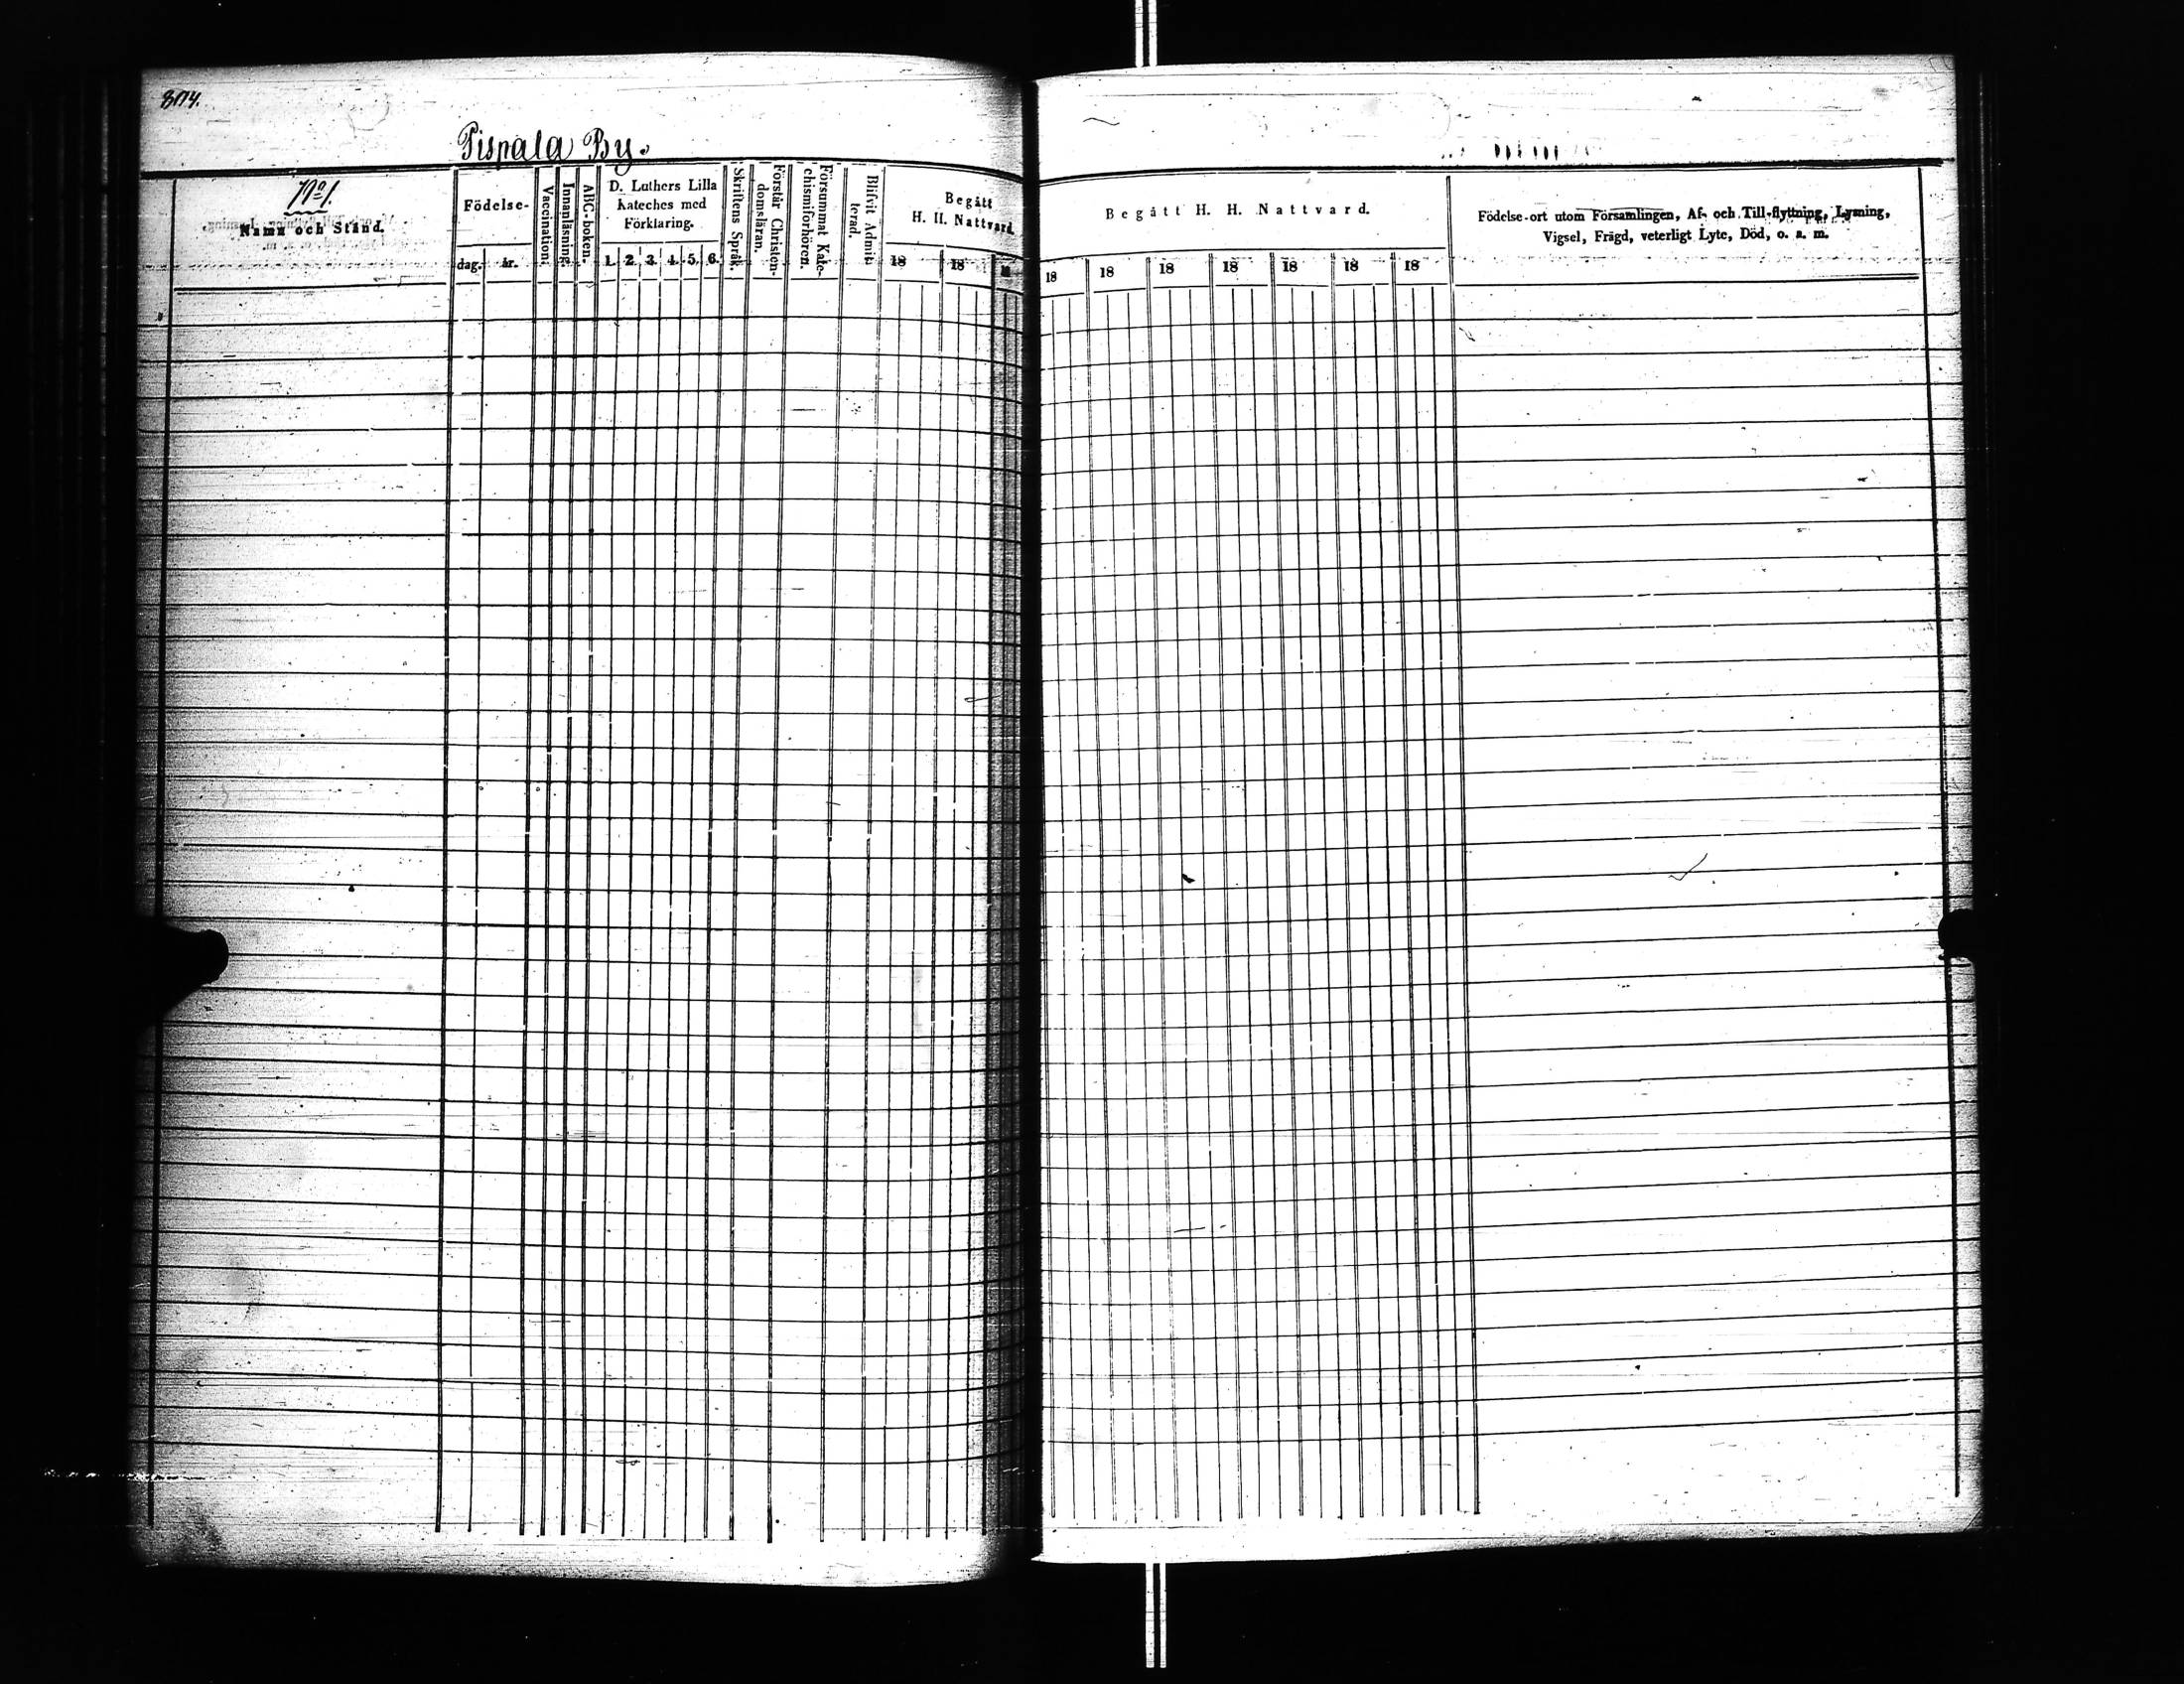 Pispala By.
No 1.
Namn och Stånd.
Födelse-
dag. år.
Vaccination.
Innanläsning.
ABC-boken.
D. Luthers Lilla
Kateches med
Förklaring.
1. 2. 3. 4. 5. 6.
Skriftens Språk.
Förstår Christen-
domsläran.
Försummat Kate-
chismiförhören.
Blifvit Admit-
terad.
Begått
H. H. Nattvard.
18 18
Begått H. H. Nattvard.
18 18 18 18 18 18 18
Födelse-ort utom Församlingen, Af- och Till-flyttning, Lysning,
Vigsel, Frägd, veterligt Lyte, Död, o. s. m.